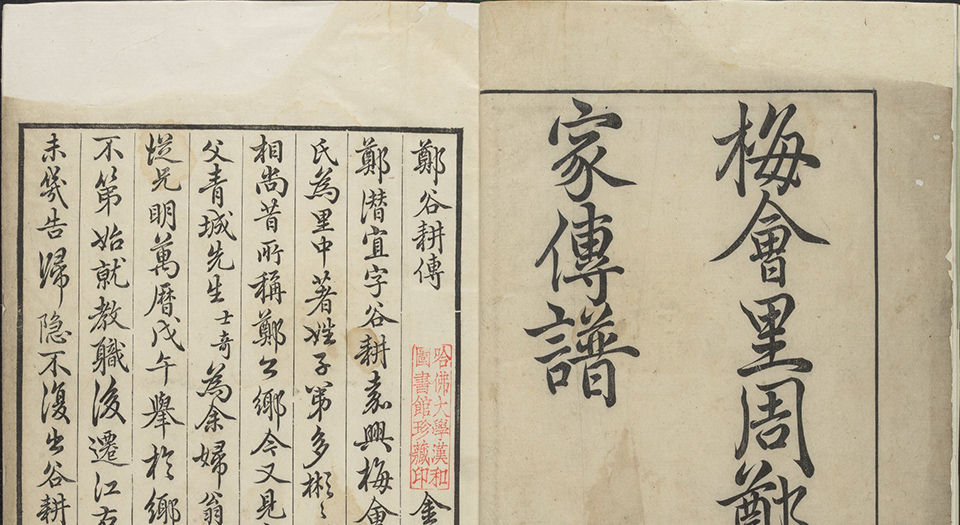 梅會里周鄭
家傳譜
鄭谷耕傳
金
哈佛大學漢和
圖書館珍藏印
鄭潛宜字谷耕嘉興梅會
氏為里中著姓子弟多彬〻
相尚昔所稱鄭公鄉今又見
父青城先生士奇為余婦翁
從兄明萬曆戊午舉於鄉
不第始就教職後遷江右
未幾告歸隐不復出谷耕